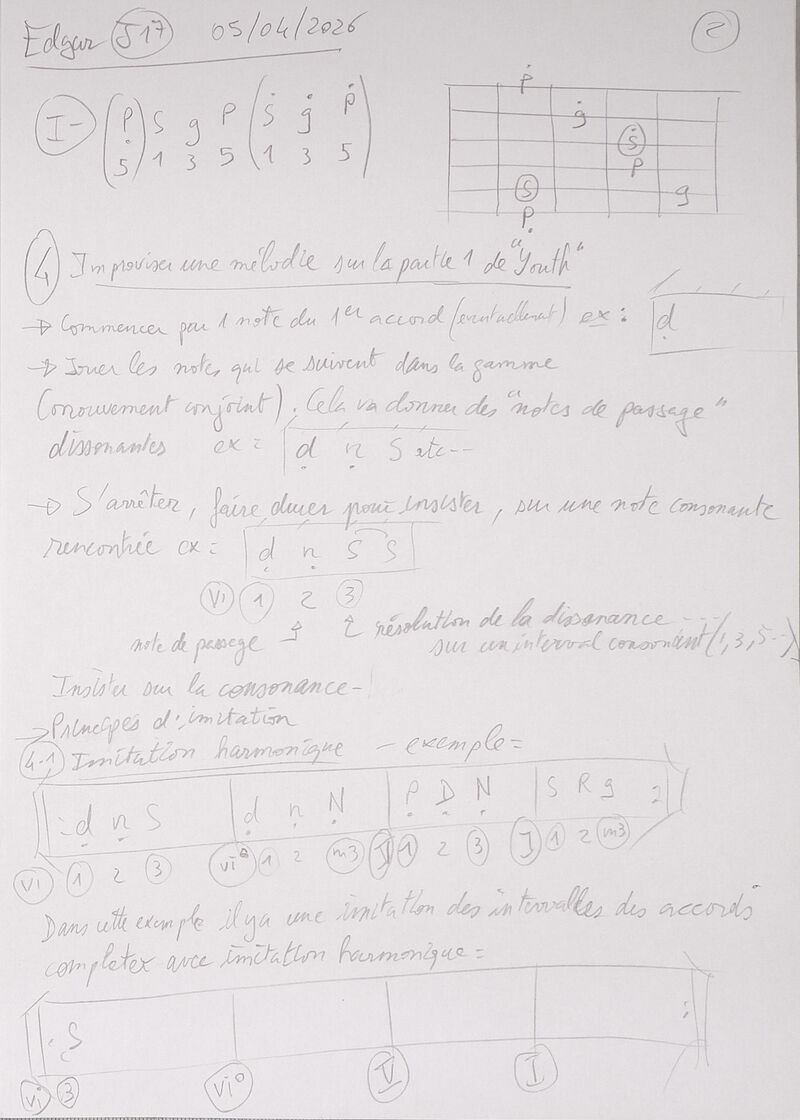 Edgar J17 05/04/2026 2
I- (P S g P (S g P)
(5) 1 3 5 (1 3 5)
P
g
S
P
S g
P
4 Improviser une mélodie sur la partie 1 de "Youth"
→ Commencer par 1 note du 1er accord (eventuellement) ex : d
→ Jouer les notes qui se suivent dans la gamme
(mouvement conjoint). Cela va donner des "notes de passage"
dissonantes ex = d n S etc--
→ S'arrêter, faire durer pour insister, sur une note consonante
rencontrée ex = d n S S
vi 1 2 3
note de passage résolution de la dissonance ---
sur un interval consonant (1, 3, 5--)
Insister sur la consonance-!
→ Principes d'imitation
4-1 Imitation harmonique - exemple =
: d n S | d n N | P D N | S R g :
vi 1 2 3 vi° 1 2 m3 V 1 2 3 I 1 2 m3
Dans cette exemple il y a une imitation des intervalles des accords
completer avec imitation harmonique =
: S :
vi 3 vi° V I